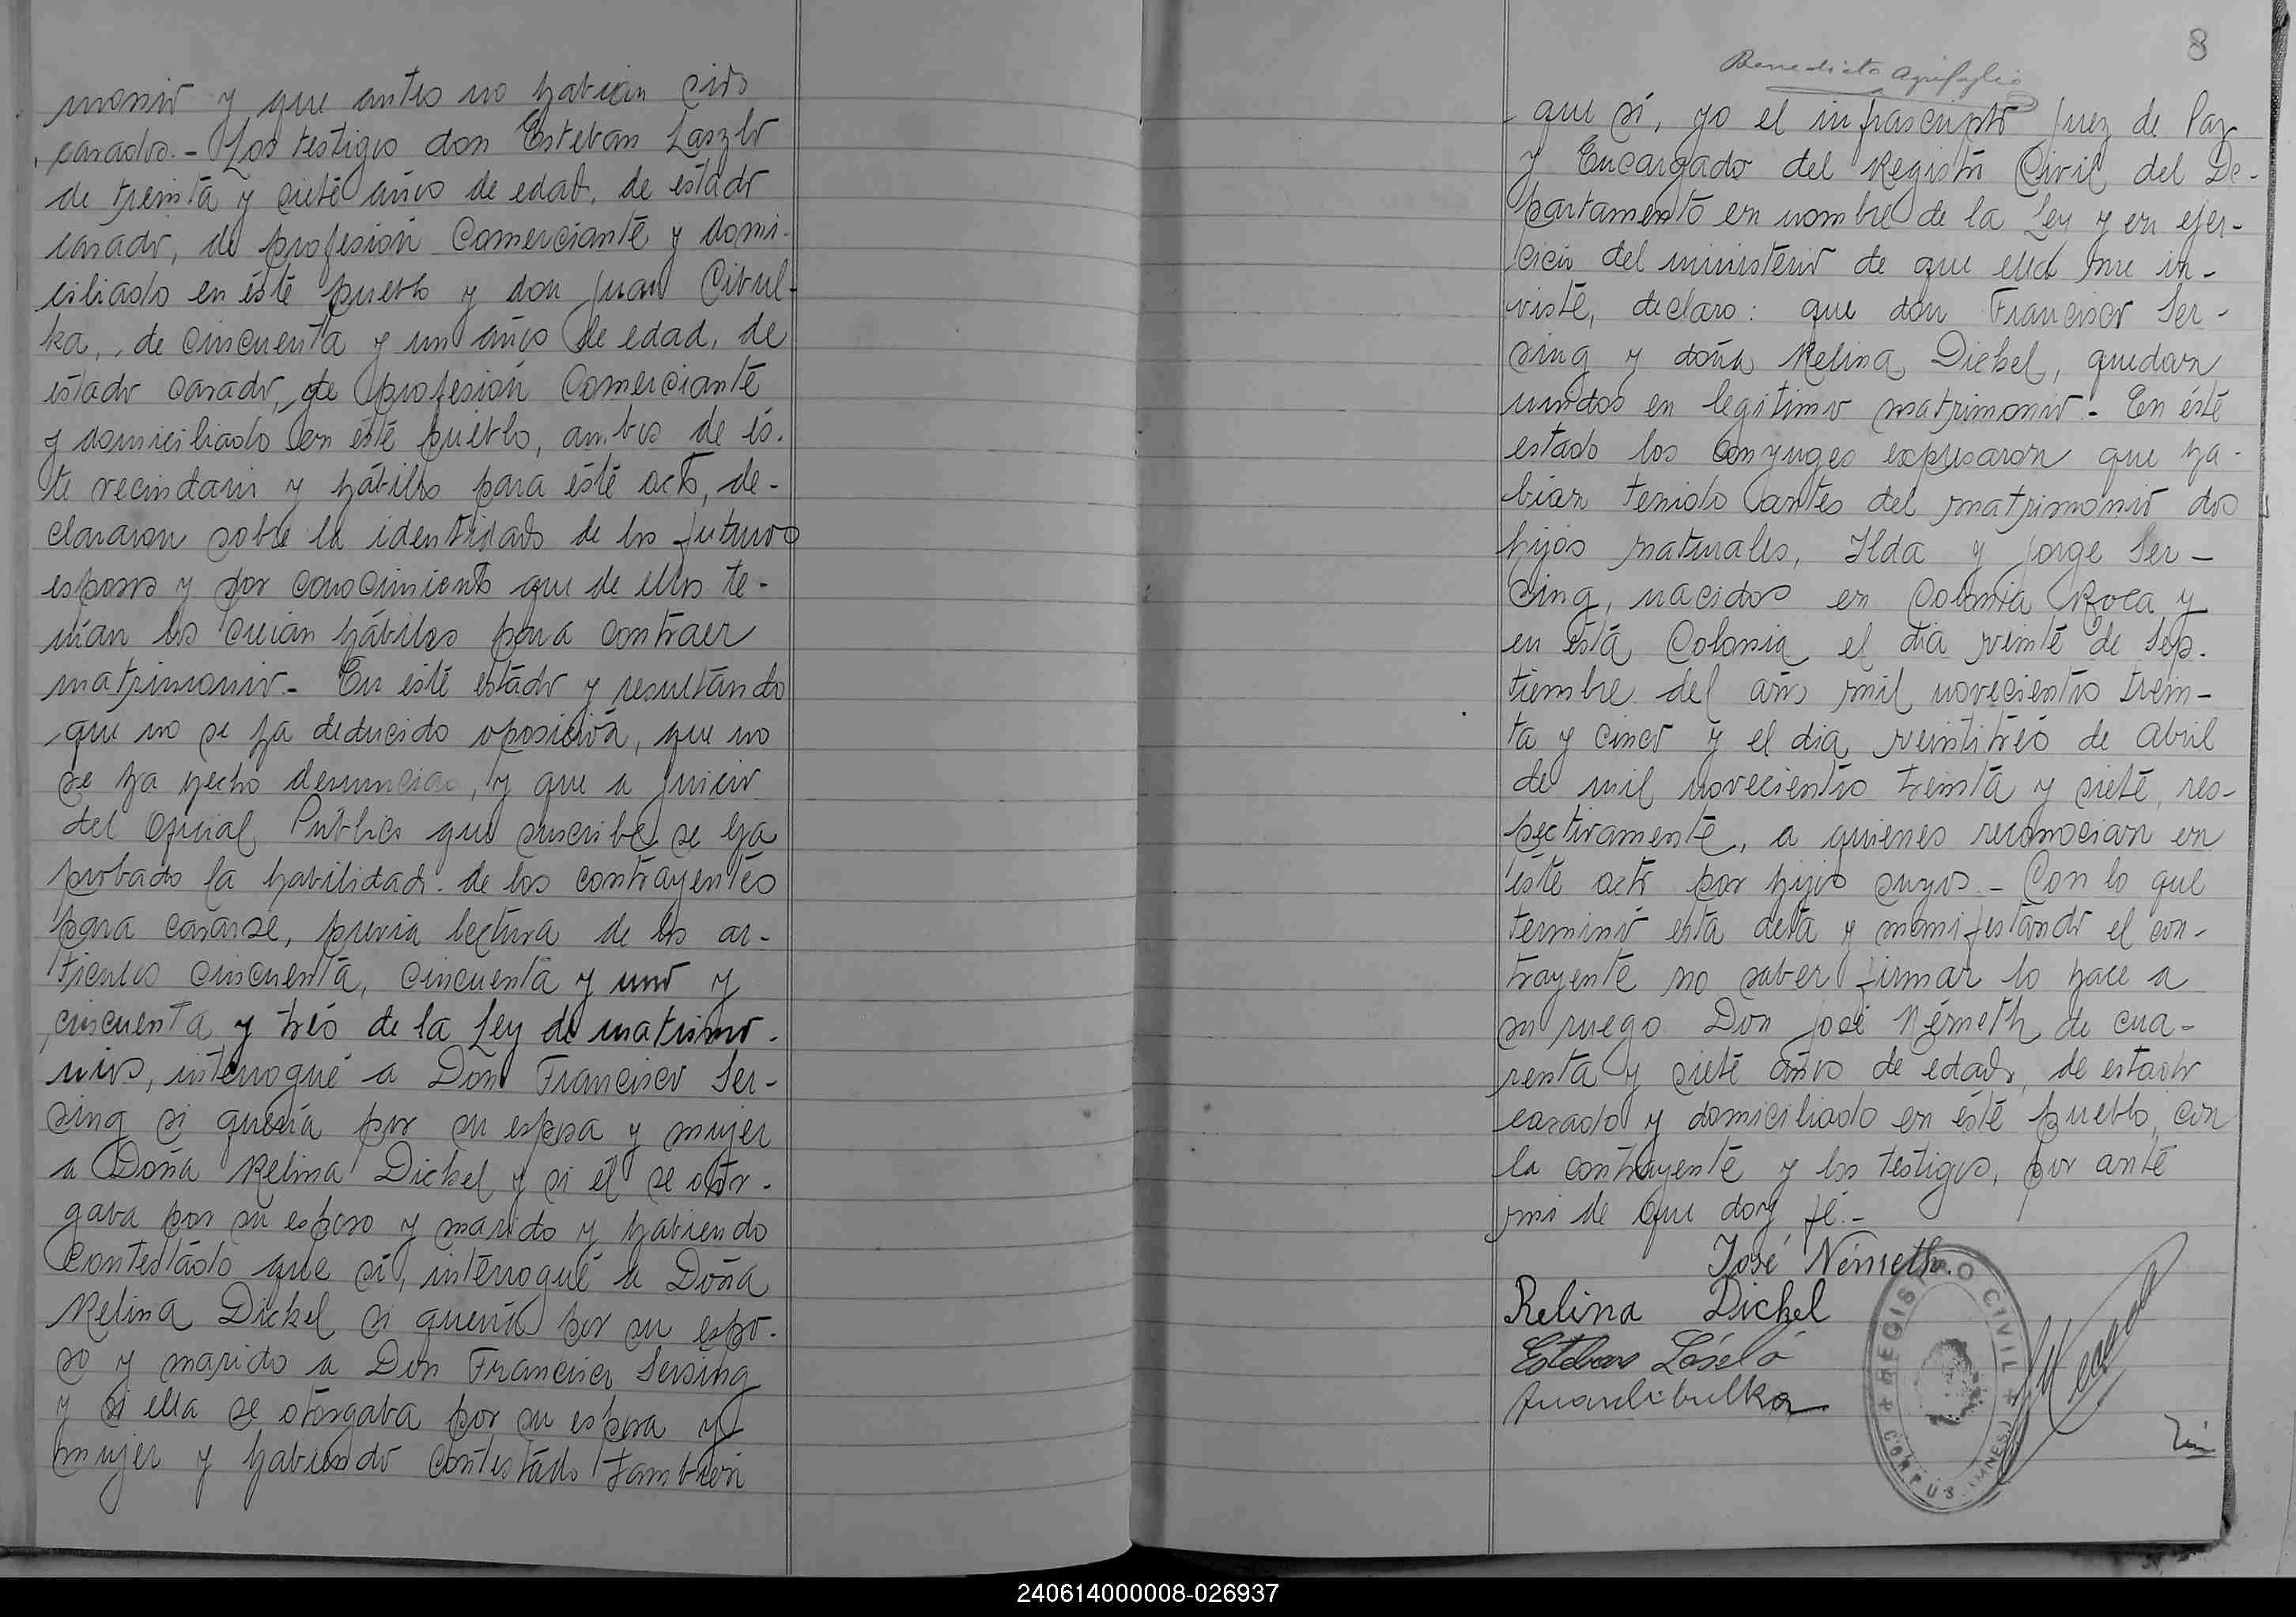 monio y que antes no habian sido
casados.- Los testigos don Esteban Laszlo
de treinta y siete años de edad, de estado
casado, de profesión Comerciante y domi-
ciliado en éste pueblo y don Juan Cibul-
ka, de cincuenta y un años de edad, de
estado casado, de profesión Comerciante
y domiciliado en éste pueblo, ambos de és-
te vecindario y hábiles para éste acto, de-
clararon sobre la identidad de los futuros
esposos y por conocimiento que de ellos te-
nian los creian hábiles para contraer
matrimonio.- En éste estado y resultando
que no se ha deducido oposición, que no
se ha hecho denuncia, y que a juicio
del Oficial Publico que suscribe se ha
probado la habilidad de los contrayentes
para casarse, previa lectura de los ar-
ticulos cincuenta, cincuenta y uno y
cincuenta y tres de la Ley de matrimo-
nios, interrogué a Don Francisco Ser-
sing si queria por su esposa y mujer
a Doña Relina Dickel y si él se otor-
gaba por su esposo y marido y habiendo
contestado que si, interrogué a Doña
Relina Dickel si queria por su espo-
so y marido a Don Francisco Sersing
y si ella se otorgaba por su esposa y
mujer y habiendo contestado tambien
8
Benedicto
que si, yo el infrascripto Juez de Paz
y Encargado del Registro Civil del De-
partamento en nombre de la Ley y en ejer-
cicio del ministerio de que ella me in-
viste, declaro: que don Francisco Ser-
sing y doña Relina Dickel, quedan
unidos en legitimo matrimonio.- En éste
estado los Conyuges expresaron que ha-
bian tenido antes del matrimonio dos
hijos naturales, Ilda y Jorge Ser-
sing, nacidos en Colonia Roca y
en ésta Colonia el dia veinte de Sep-
tiembre del año mil novecientos trein-
ta y cinco y el dia veintitrés de abril
de mil novecientos treinta y siete, res-
pectivamente, a quienes reconocian en
éste acto por hijos suyos.- Con lo que
terminó esta acta y manifestando el con-
trayente no saber firmar lo hace a
su ruego Don José Németh de cua-
renta y siete años de edad, de estado
casado y domiciliado en éste pueblo, con
la contrayente y los testigos, por ante
mi de que doy fé.-
José Németh.
Relina Dickel
Esteban László
Juan Cibulka
REGISTRO CIVIL
CORPUS (MNES.)
240614000008-026937